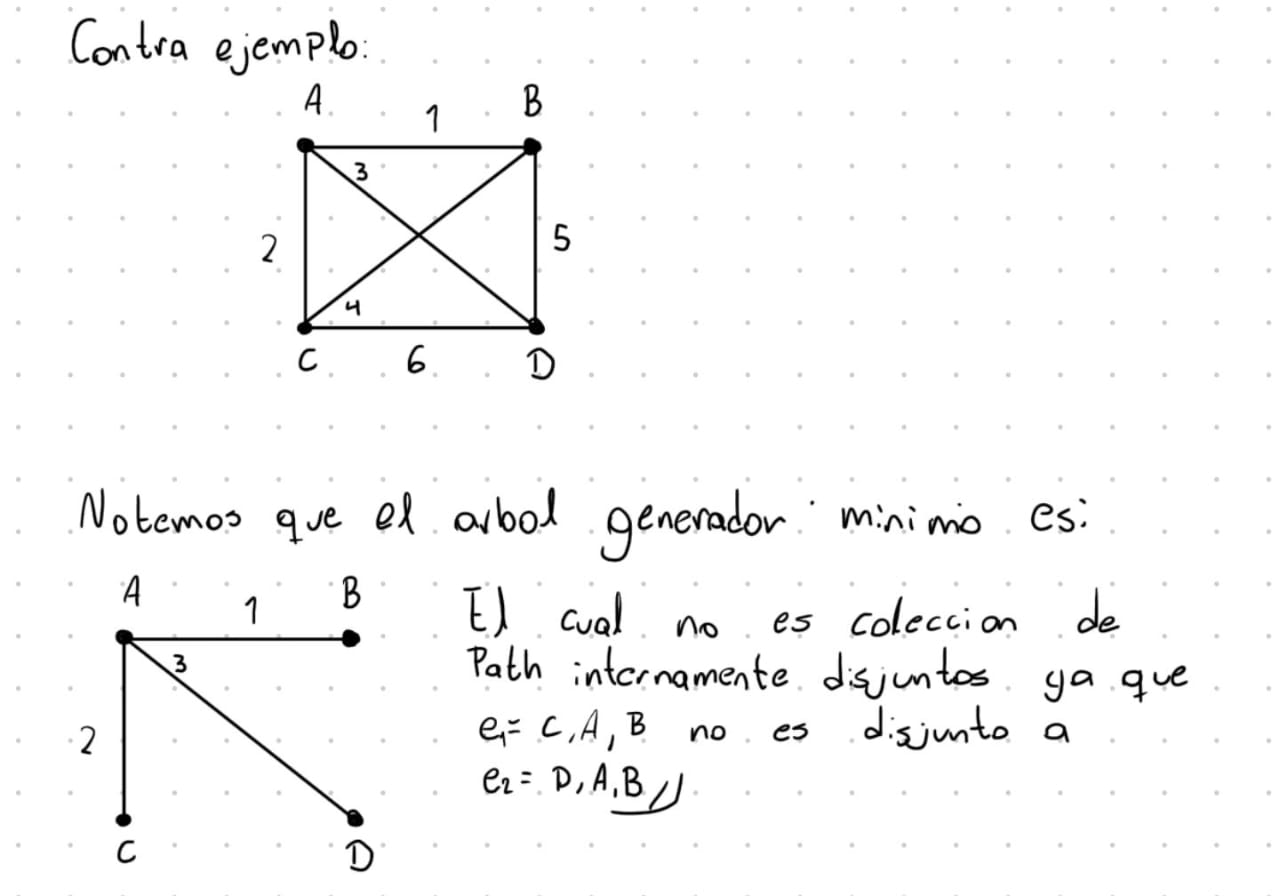 Contra ejemplo:
A B
1
3
2 5
4
C 6 D
Notemos que el arbol generador minimo es:
A 1 B
El cual no es coleccion de
3
Path internamente disjuntos ya que
2
e₁= C, A, B no es disjunto a
e₂= D, A, B
C D